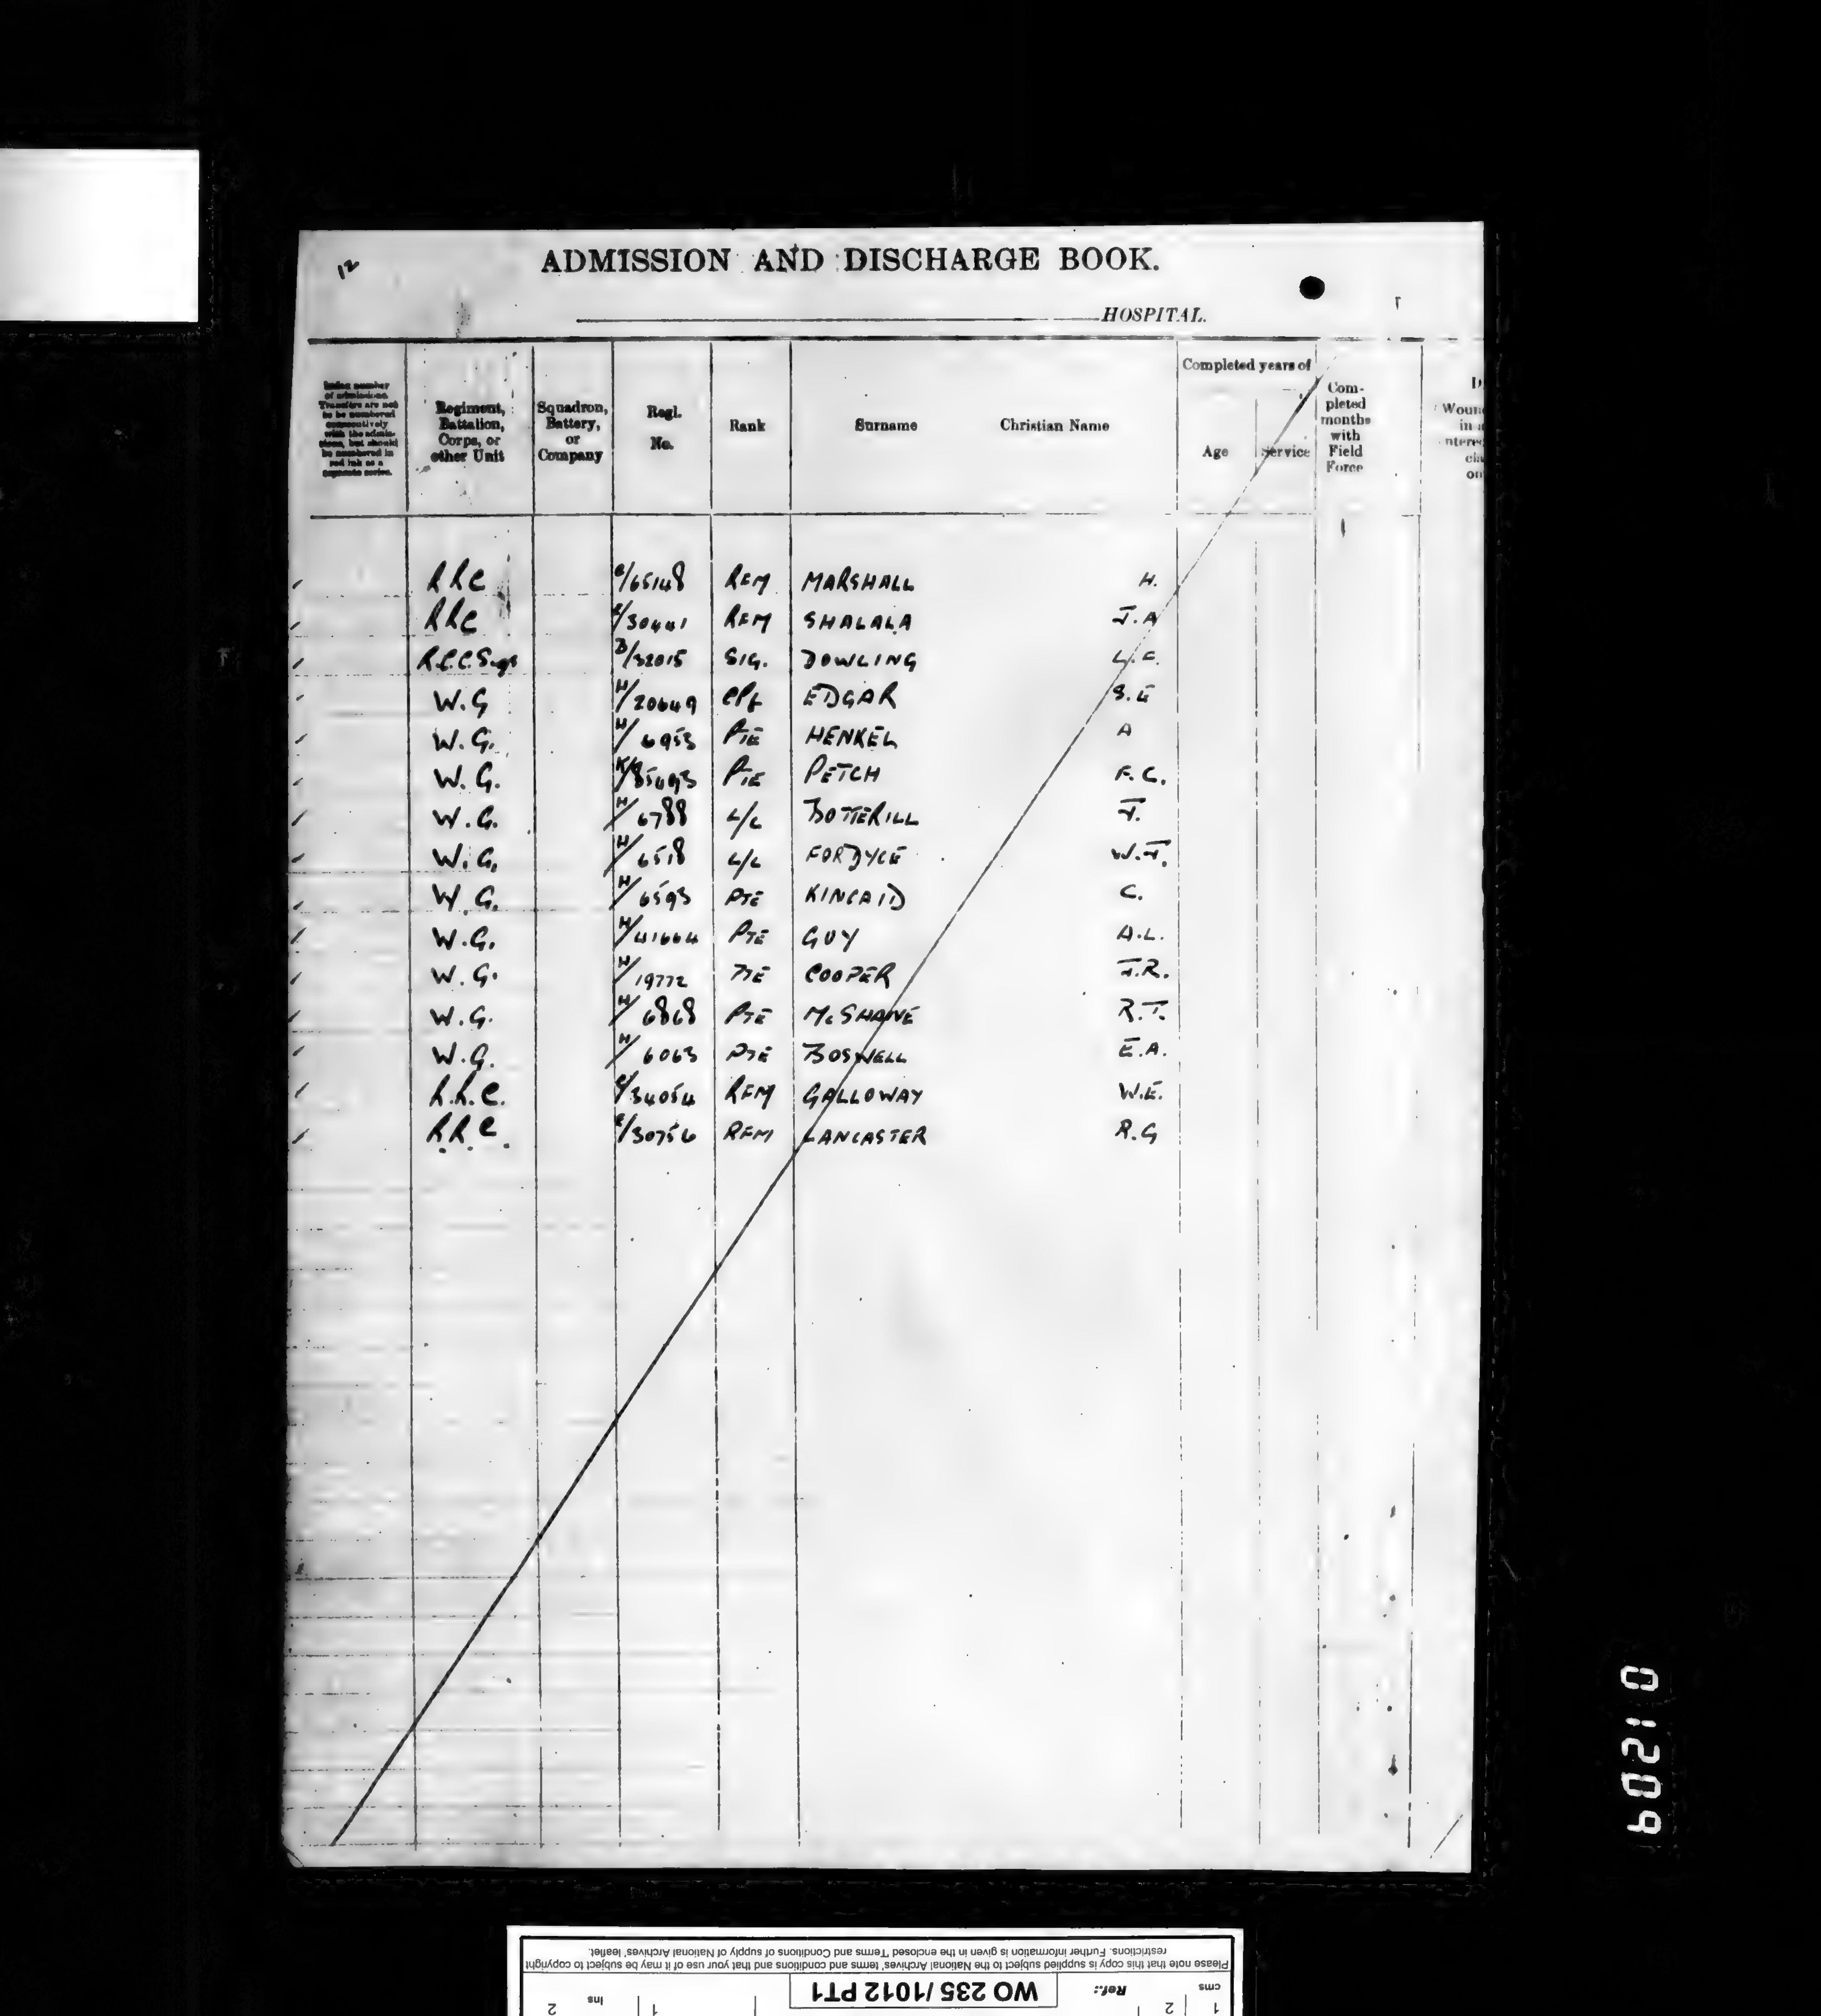 12
ADMISSION AND DISCHARGE BOOK.
HOSPITAL.
Index number of admissions. Transfers are not to be numbered consecutively with the admissions, but should be numbered in red ink as a separate series.
Regiment, Battalion, Corps, or other Unit
Squadron, Battery, or Company
Regl. No.
Rank
Surname
Christian Name
Completed years of
Age
Service
Completed months with Field Force
RRC E/65148 RFM MARSHALL H.
RRC E/30441 RFM SHALALA J.A
R.C.C.Sigs B/32015 SIG. DOWLING L.C.
W.G H/20649 CPL EDGAR S.E
W.G. H/6953 PTE HENKEL A
W.G. PTE PETCH F.C.
W.G. H/6788 L/C BOTTERILL J.
W.G. H/6518 L/C FORDYCE W.J.
W.G. H/6593 PTE KINCAID C.
W.G. H/41664 PTE GUY A.L.
W.G. H/19772 PTE COOPER J.R.
W.G. H/6868 PTE McSHANE R.T.
W.G. H/6063 PTE BOSWELL E.A.
R.R.C. E/34054 RFM GALLOWAY W.E.
RRC E/30756 RFM LANCASTER R.G
01209
Please note that this copy is supplied subject to the National Archives' terms and conditions and that your use of it may be subject to copyright
restrictions. Further information is given in the enclosed 'Terms and Conditions of supply of National Archives' leaflet.
cms 1 2
Ref.: WO 235/1012 PT1
1 ins 2